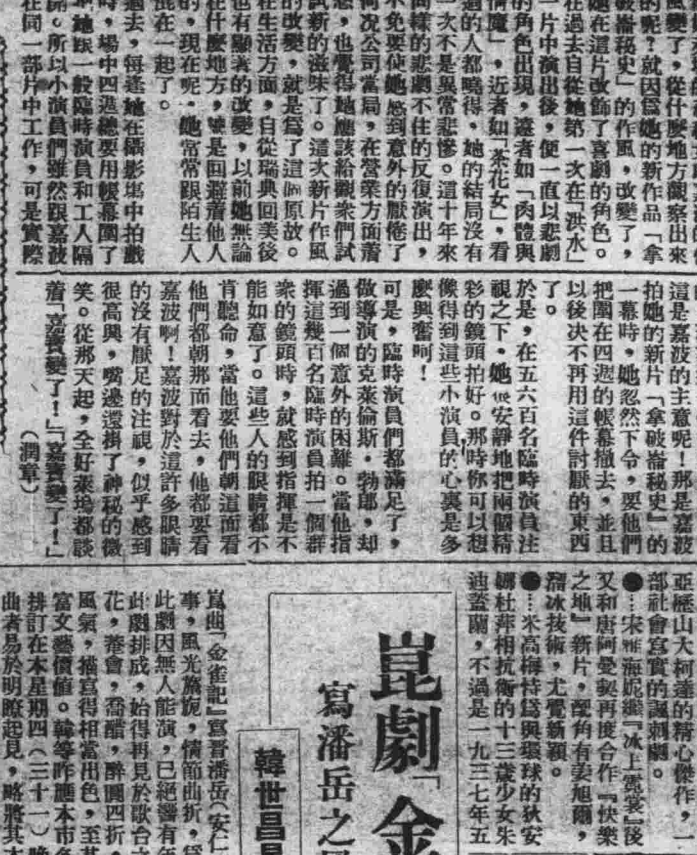 風變了，從什麼地方觀察出來
的呢？就因爲她的新作品「拿
破崙秘史」的作風，改變了，
她在這片改飾了喜劇的角色。
在過去自從她第一次在「洪水」
一片中演出後，便一直以悲劇
的角色出現，遠者如「肉體與
情魔」，近者如「茶花女」，看
過的人都曉得，她的結局沒有
一次不是異常悲慘。這十年來
同樣的悲劇不住的反復演出，
不免要使她感到意外的厭倦了
何况公司當局，在營業方面着
想，也覺得她應該給觀衆們試
試新的滋味了。這次新片作風
的改變，就是爲了這個原故。
在生活方面，自從瑞典回美後
也有顯著的改變，以前她無論
在什麼地方，總是回避着他人
的，現在呢。她常常跟陌生人
混在一起了。
過去，每逢她在攝影塲中拍戲
時，場中四週總要用帳幕圍了
她跟一般臨時演員和工人隔
開。所以小演員們雖然跟嘉波
在同一部片中工作，可是實際
這是嘉波的主意呢！那是嘉波
拍她的新片「拿破崙秘史」的
一幕時，她忽然下令，要他們
把圍在四週的帳幕撤去，並且
以後决不再用這件討厭的東西
了。
於是，在五六百名臨時演員注
視之下，她很安靜地把兩個精
彩的鏡頭拍好。那時你可以想
像得到這些小演員的心裏是多
麼興奮呵！
可是，臨時演員們都滿足了，
做導演的克萊倫斯·勃郎，却
遇到一個意外的困難。當他指
揮這幾百名臨時演員拍一個群
衆的鏡頭時，就感到指揮是不
能如意了。這些人的眼睛都不
肯聽命，當他要他們朝這面看
他們都朝那面看去，他都要看
嘉波啊！嘉波對於這許多眼睛
的沒有厭足的注視，似乎感到
很高興，嘴邊還掛了神秘的微
笑。從那天起，全好萊塢都談
着「嘉寶變了！」「嘉寶變了！」
（潤章）
亞歷山大柯達的精心傑作，一
部社會寫實的諷刺劇。
●…宋雅海妮繼『冰上霓裳』後
又和唐阿曼契再度合作『快樂
之地』新片，配角有姜旭爾，
溜冰技術，尤覺新穎。
●…米高梅特爲與環球的狄安
娜杜萍相抗衡的十三歲少女朱
迪蓋蘭，不過是一九三七年五
崑劇「金
寫潘岳之
韓世昌
崑曲「金雀記」寫晉潘岳（安仁
事，風光旖旎，情節曲折，
此劇因無人能演，已絕響有年
此劇排成，始得再見於歌台之
花，菴會，喬醋，醉圓四折，
風氣，描寫得相當出色，至其
富文藝價値。韓等昨應本市
排訂在本星期四（三十一）晚
曲者易於明瞭起見，略將其本